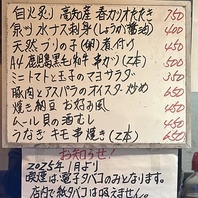 自火炙り 高知産 春カツオたたき 750
泉州 水ナス刺身(しょうが醤油) 400
天然ブリの子(卵)煮付け 450
A4 鹿児島黒毛和牛 串カツ(2本)
ミニトマトと玉子のマヨサラダ 350
豚肉とアスパラのオイスター炒め 650
焼き納豆 お好み風 450
ムール貝の酒むし 450
うなぎ キモ串焼き(2本) 650
お知らせ!
2025年1月より
喫煙は電子タバコのみとなります。
店内で紙タバコは吸えません。